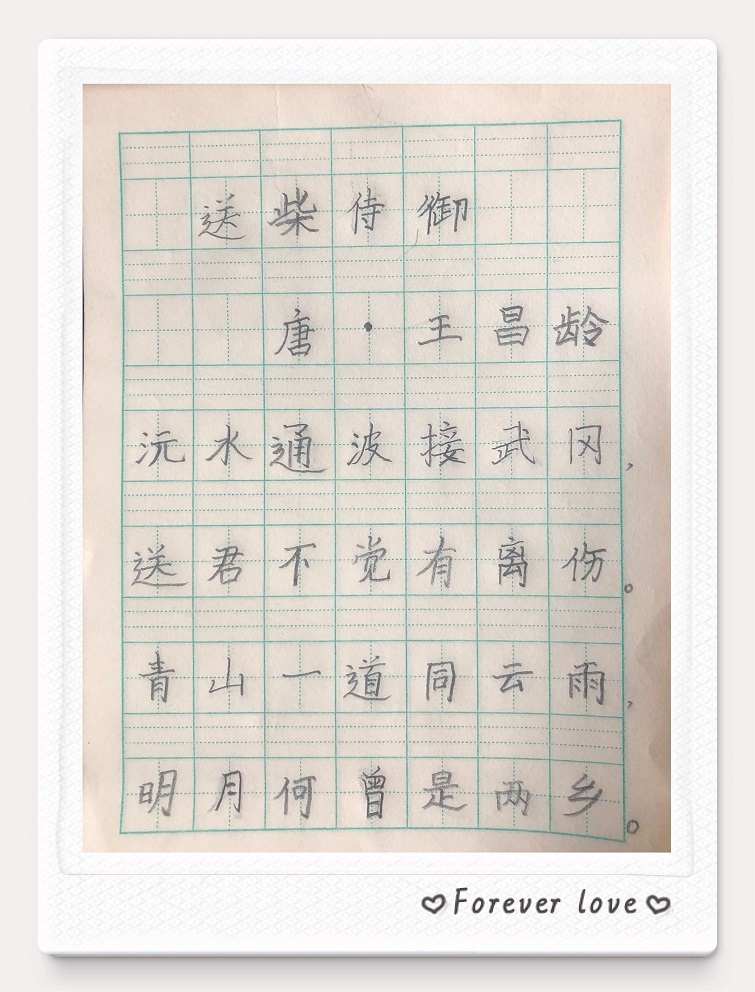 送柴侍御
唐·王昌龄
沅水通波接武冈，
送君不觉有离伤。
青山一道同云雨，
明月何曾是两乡。
♡Forever love♡